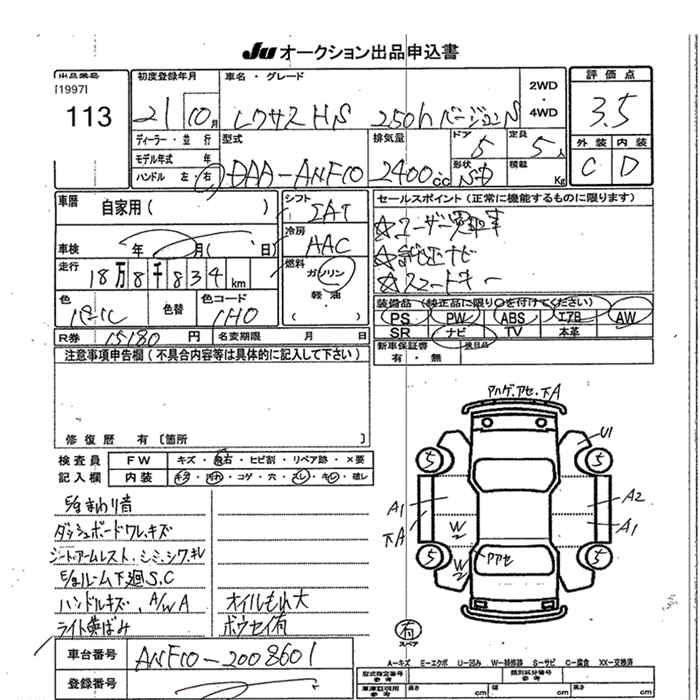 Ju オークション出品申込書
出品番号
[1997]
113
初度登録年月
21 10月
車名・グレード
レクサスHS 250h バージョンS
2WD
・
4WD
評価点
3.5
外装 内装
C D
ディーラー・並行
モデル年式 年
ハンドル 左・右
型式
DAA-ANF10
排気量
2400cc
ドア
5
定員
5人
形状
積載
Kg
車歴
自家用( )
シフト
IAT
冷房
AAC
燃料
ガソリン
軽油
( )
車検 年 月( 日)
走行
18万8千834km
色
パール
色替
色コード
1H0
R券 15180円
名変期限 月 日
セールスポイント(正常に機能するものに限ります)
☆ユーザー買取車
☆純正ナビ
☆スマートキー
装備品(純正品に限り○を付けてください)
PS PW ABS エアB AW
SR ナビ TV 本革
新車保証書 後日品
有・無
注意事項申告欄(不具合内容等は具体的に記入して下さい)
修復歴 有〔箇所 〕
検査員
記入欄
FW キズ・飛石・ヒビ割・リペア跡・×要
内装 キズ・汚れ・コゲ・穴・スレ・キレ・破レ
E/gまわり音
ダッシュボードワレ、キズ
シート、アームレスト、シミ、シワ、キレ
E/gルーム下廻S.C
ハンドルキズ、A/WA
ライト黄ばみ
オイルもれ大
ボウセイ有
車台番号 ANF10-2008601
登録番号
アハゲ、アセ、下A
U1
5
5
A1
下A
W
A2
A1
5
5
W2
Pアセ
有
スペア
A-キズ E-エクボ U-凹み W-補修跡 S-サビ C-腐食 XX-交換済
型式指定番号
類別区分番号
長さ cm
cm
高さ cm